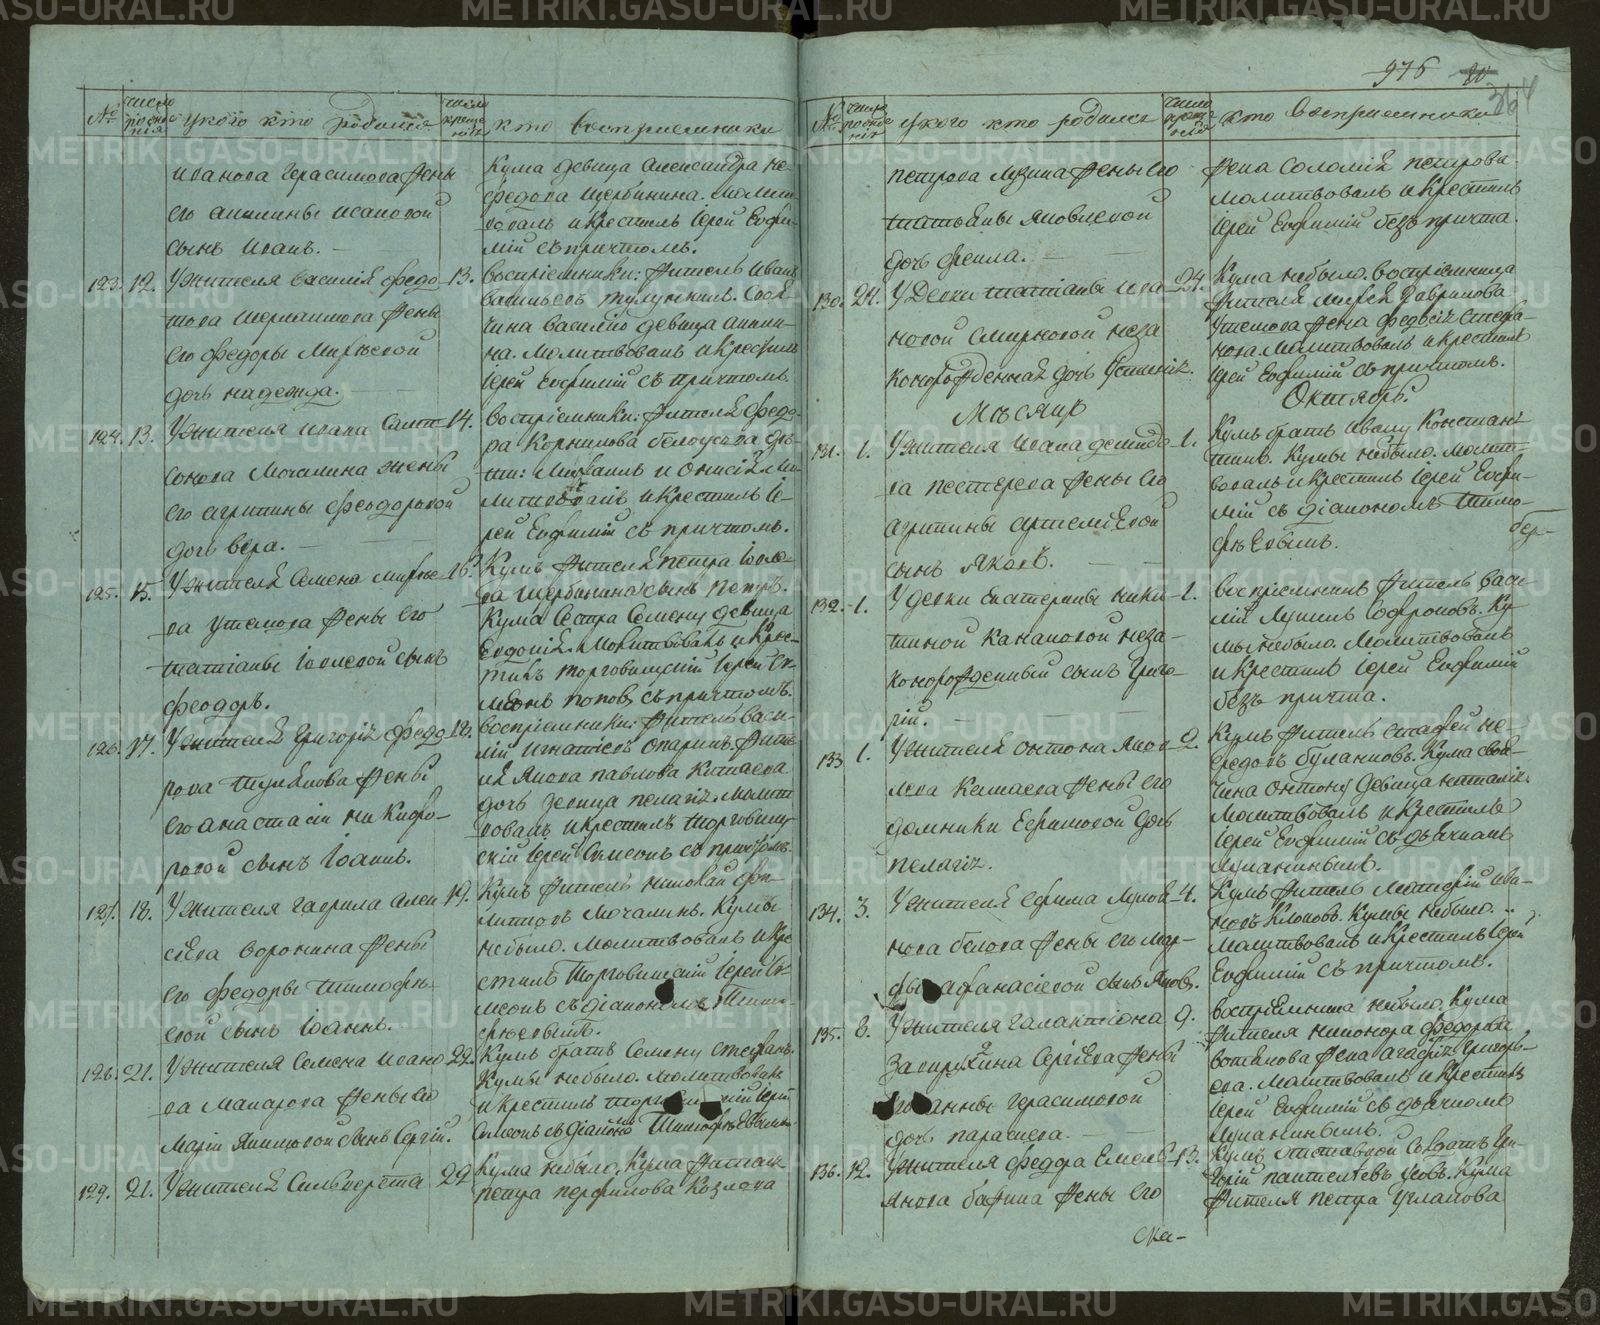 975 80
364
№ число рожденія у кого кто родился число крещенія кто восприемники
Иванова Герасимова жены
его Акилины Исаковой
сынъ Иванъ.
Кума девица Александра Не-
федова Щербинина. Молит-
вовалъ и крестилъ Іерей Евфи-
мій съ причтомъ.
123. 12. У жителя Василія Федо- 13.
това Шермашова жены
его Федоры Миръевой
дочь Надежда.
Воспріемники: житель Иванъ
Васильевъ Сосѣ-
чина Василію девица Акили-
на. Молитвовалъ и крестилъ
Іерей Евфимій съ причтомъ.
124. 13. У жителя Ивана Самп- 14.
сонова Мочалина жены
его Агрипины Феодоровой
дочь Вера.
Воспріемники: жителя Федо-
ра Корнилова Белоусова дѣ-
ти: Михаилъ и Онисія. Мо-
литвовалъ и крестилъ Іе-
рей Евфимій съ причтомъ.
125. 15. У жителя Семена Миріе- 16.
ва Утемова жены его
Татіаны Іовлевой сынъ
Феодоръ.
Кумъ жителя Петра Іовле-
ва Щербинина сынъ Петръ.
Кума сестра Семену девица
Евдокія. Молитвовалъ и крес-
тилъ Торговишскій Іерей Си-
меонъ Поповъ съ причтомъ.
126. 17. У жителя Григорія Федо- 18.
рова жены
его Анастасіи Никифо-
ровой сынъ Іоаннъ.
Воспріемники: житель Васи-
лій Игнатіевъ Опаринъ, жите-
ля Якова Павлова Китаева
дочь девица Пелагія. Молит-
вовалъ и крестилъ Торговиш-
скій Іерей Симеонъ съ причтомъ.
127. 18. У жителя Гаврила Алек- 19.
сѣева Воронина жены
его Федоры Тимофѣе-
вой сынъ Іоаннъ.
Кумъ житель Николай Фи-
липповъ Мочалинъ. Кумы
небыло. Молитвовалъ и кре-
стилъ Торговишскій Іерей Си-
меонъ съ діакономъ Тимо-
фѣевымъ.
128. 21. У жителя Семена Ивано- 22.
ва Макарова жены его
Маріи Якимовой сынъ Сергій.
Кумъ братъ Семену Стефанъ.
Кумы небыло. Молитвовалъ
и крестилъ Іерей
Симеонъ съ діакономъ Тимофѣевымъ.
129. 21. У жителя Сильверста 22
Кума небыло, Кума жителя
Петра Перфилова Козлова
№ число рожденія у кого кто родился число крещенія кто восприемники
Петрова Музина жены его
Татьяны Яковлевой
дочь Фекла.
жена Соломія Петрова.
Молитвовалъ и крестилъ
Іерей Евфимій безъ причта.
130. 24. У девки Татіаны Ива- 24.
новой Смирновой неза-
конорожденная дочь Устинія.
Кума небыло. Воспріемница
жителя Мирѣя Гаврилова
Утемова жена Федосія Стефа-
нова. Молитвовалъ и крестилъ
Іерей Евфимій съ причтомъ.
Мѣсяцъ Октябрь.
131. 1. У жителя Ивана Демидо- 1.
ва Пестерева жены его
Агрипины Артеміевой
сынъ Яковъ.
Кумъ братъ Ивану Констан-
тинъ. Кумы небыло. Молит-
вовалъ и крестилъ Іерей Евфи-
мій съ діакономъ Тимо-
фѣевымъ.
132. 1. У девки Екатерины Ники- 1.
тиной Канаковой неза-
конорожденный сынъ Григо-
рій.
Воспріемникъ житель Васи-
лій Софроновъ. Ку-
мы небыло. Молитвовалъ
и крестилъ Іерей Евфимій
безъ причта.
133 1. У жителя Антона Яков- 2.
лева Китаева жены его
Домники Ефимовой дочь
Пелагія.
Кумъ житель Не-
федовъ Булановъ. Кума своя-
чина Антону девица Наталія.
Молитвовалъ и крестилъ
Іерей Евфимій съ дьячкомъ
Луканинымъ.
134. 3. У жителя Ефима Лукоя- 4.
нова Белова жены его Мар-
фы Афанасіевой сынъ Яковъ.
Кумъ житель Матфій Ива-
новъ Клоповъ. Кумы небыло.
Молитвовалъ и крестилъ Іерей
Евфимій съ причтомъ.
135. 8. У жителя Галактіона 9.
Сергіева жены
его Анны Герасимовой
дочь Параскева.
Воспріемника небыло, Кума
жителя Никонора Федорова
Вотинова жена Агафія Григорь-
ева. Молитвовалъ и крестилъ
Іерей Евфимій съ дьячкомъ
Луканинымъ.
136. 12. У жителя Федора Емель- 13.
янова Бажина жены его
Кумъ отставной солдатъ Гри-
горій Пантелѣевъ Усовъ. Кума
жителя Петра Углакова
Ска-